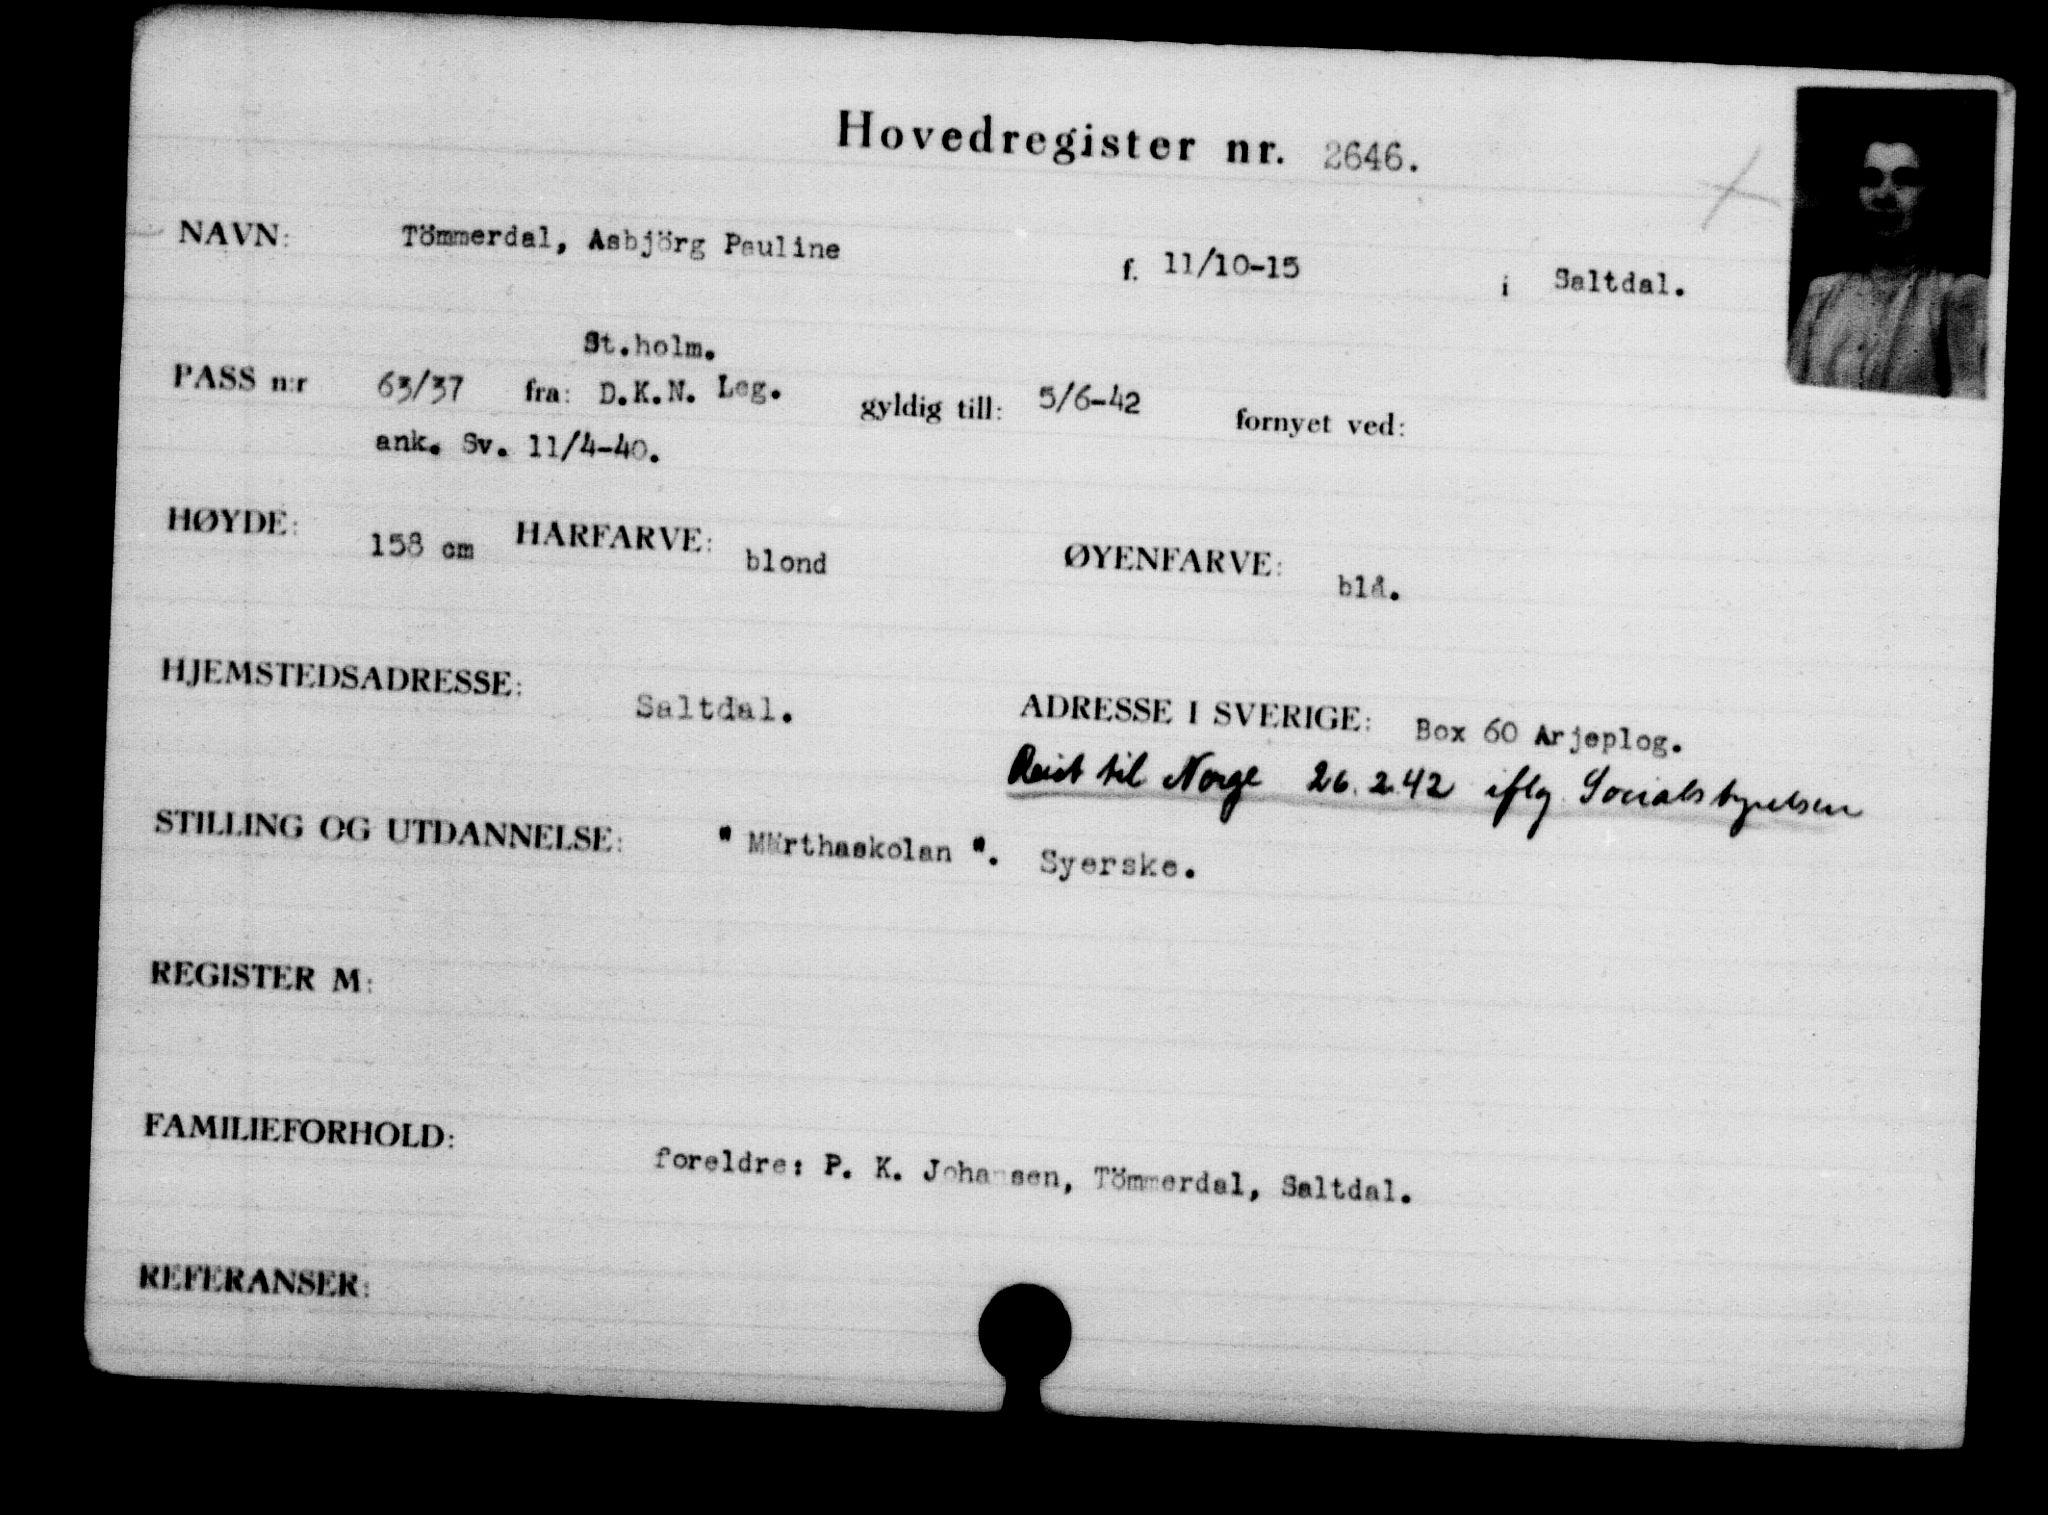 Hovedregister nr. 2646.
NAVN: Tömmerdal, Asbjörg Pauline f. 11/10-15 i Saltdal.
St.holm.
PASS n:r 63/37 fra: D.K.N. Leg. gyldig till: 5/6-42 fornyet ved:
ank. Sv. 11/4-40.
HØYDE: 158 cm HARFARVE: blond ØYENFARVE: blå.
HJEMSTEDSADRESSE: Saltdal. ADRESSE I SVERIGE: Box 60 Arjeplog.
Reist til Norge 26.2.42 iflg. Socialstyrelsen
STILLING OG UTDANNELSE: " Märthaskolan ". Syerske.
REGISTER M:
FAMILIEFORHOLD: foreldre: P. K. Johansen, Tömmerdal, Saltdal.
REFERANSER: